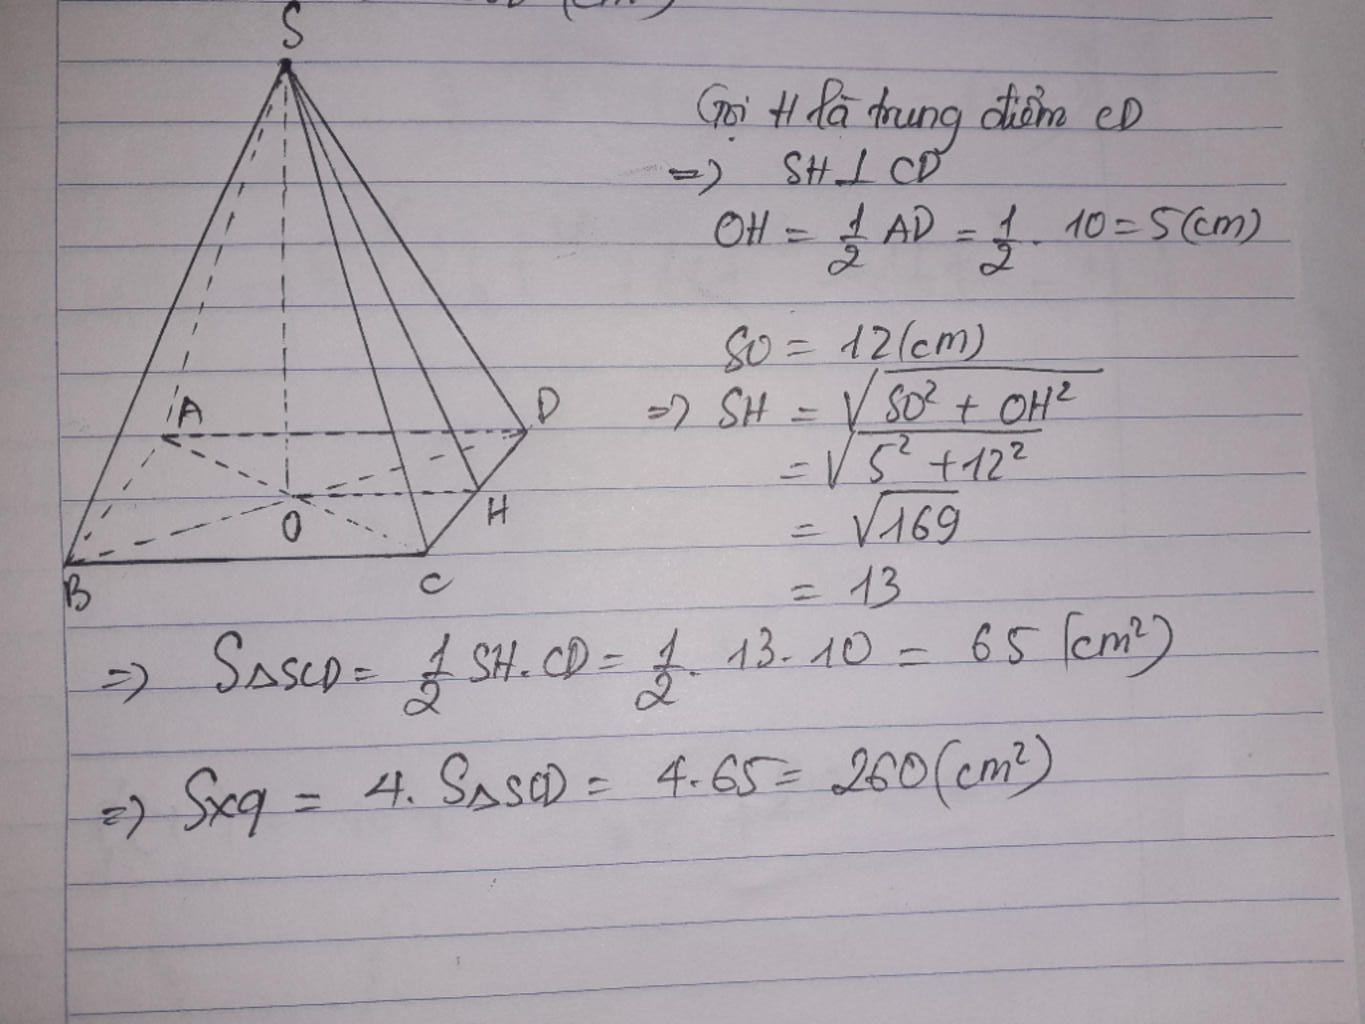 (cm)
S
Gọi H là trung điểm CD
=> SH ⊥ CD
OH = 1/2 AD = 1/2 . 10 = 5 (cm)
SO = 12 (cm)
A
D
=> SH = √SO² + OH²
= √5² + 12²
H
O
= √169
B
C
= 13
=> SΔSCD = 1/2 SH . CD = 1/2 . 13 . 10 = 65 (cm²)
=> Sxq = 4 . SΔSCD = 4 . 65 = 260 (cm²)